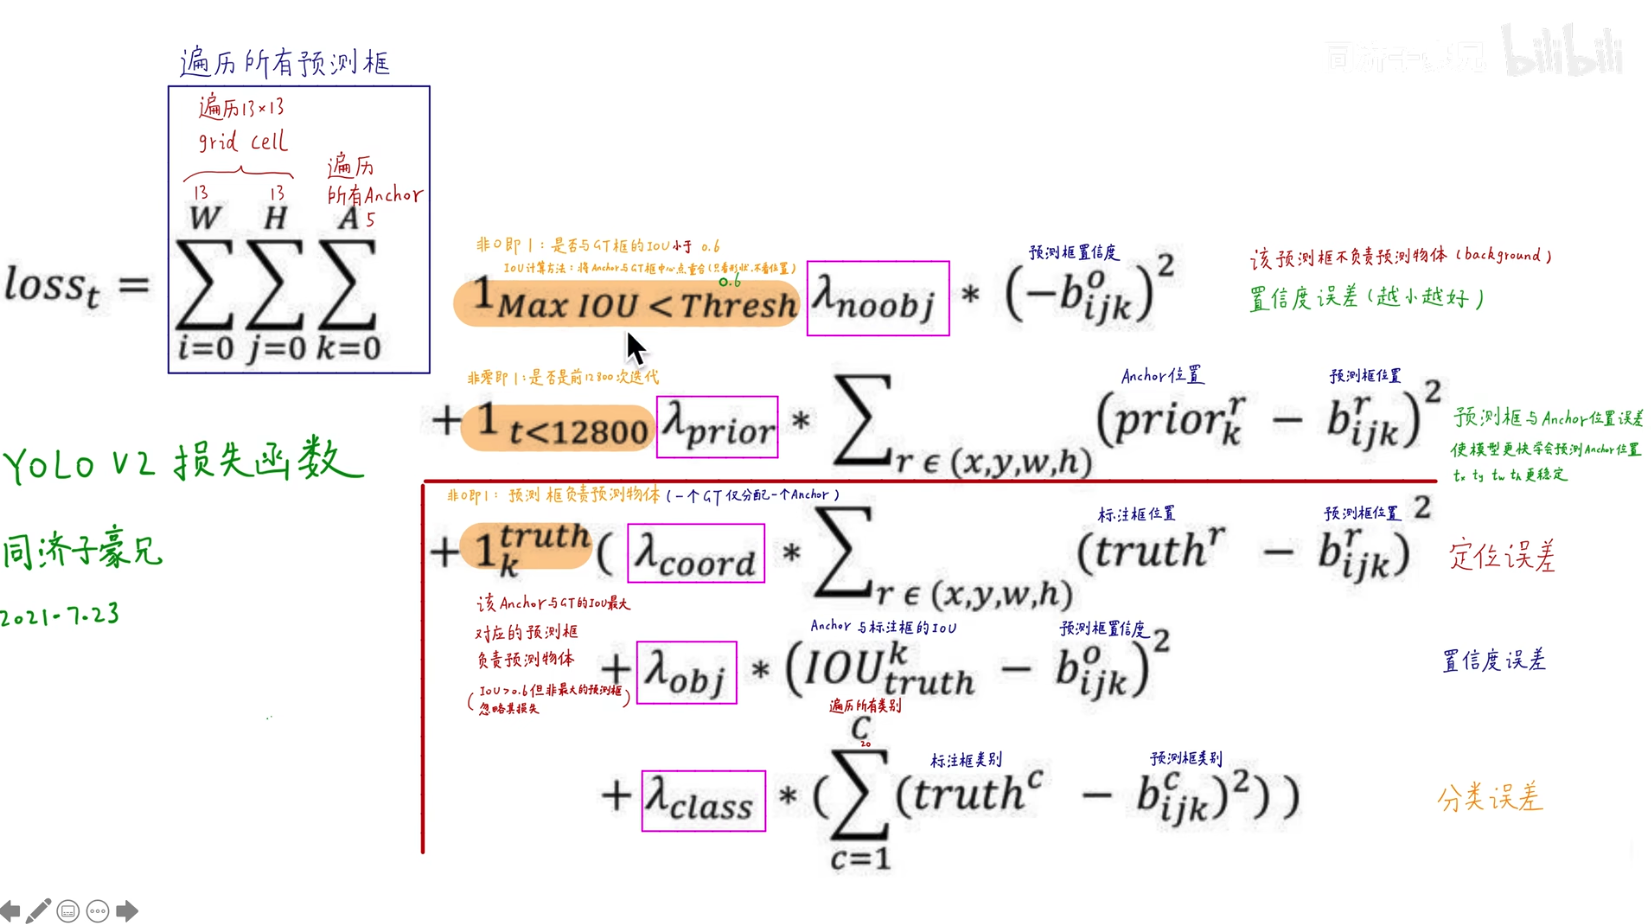 同济子豪兄 bilibili
遍历所有预测框
遍历13×13
grid cell
遍历
所有Anchor
13 13 5
W H A
loss_t = ∑ ∑ ∑
i=0 j=0 k=0
非0即1：是否与GT框的IOU小于 0.6
IOU计算方法：将Anchor与GT框中心点重合(只看形状,不看位置)
0.6
预测框置信度
1_{Max IOU < Thresh} λ_{noobj} * (−b_{ijk}^{o})^2
该预测框不负责预测物体(background)
置信度误差(越小越好)
非零即1：是否是前12800次迭代
Anchor位置 预测框位置
+ 1_{t<12800} λ_{prior} * ∑_{r ϵ (x,y,w,h)} (prior_k^r − b_{ijk}^r)^2
预测框与Anchor位置误差
使模型更快学会预测Anchor位置
tx ty tw th 更稳定
YOLO V2 损失函数
同济子豪兄
2021-7.23
非0即1：预测框负责预测物体(一个GT仅分配一个Anchor)
标注框位置 预测框位置
+ 1_k^{truth} ( λ_{coord} * ∑_{r ϵ (x,y,w,h)} (truth^r − b_{ijk}^r)^2
定位误差
该Anchor与GT的IOU最大
对应的预测框
负责预测物体
(IOU>0.6但非最大的预测框
忽略其损失)
Anchor与标注框的IOU 预测框置信度
+ λ_{obj} * (IOU_{truth}^k − b_{ijk}^o)^2
置信度误差
遍历所有类别
C
20
标注框类别 预测框类别
+ λ_{class} * (∑ (truth^c − b_{ijk}^c)^2))
c=1
分类误差